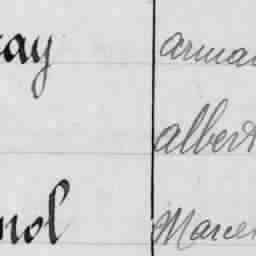 ay arma
albert
nol Marce